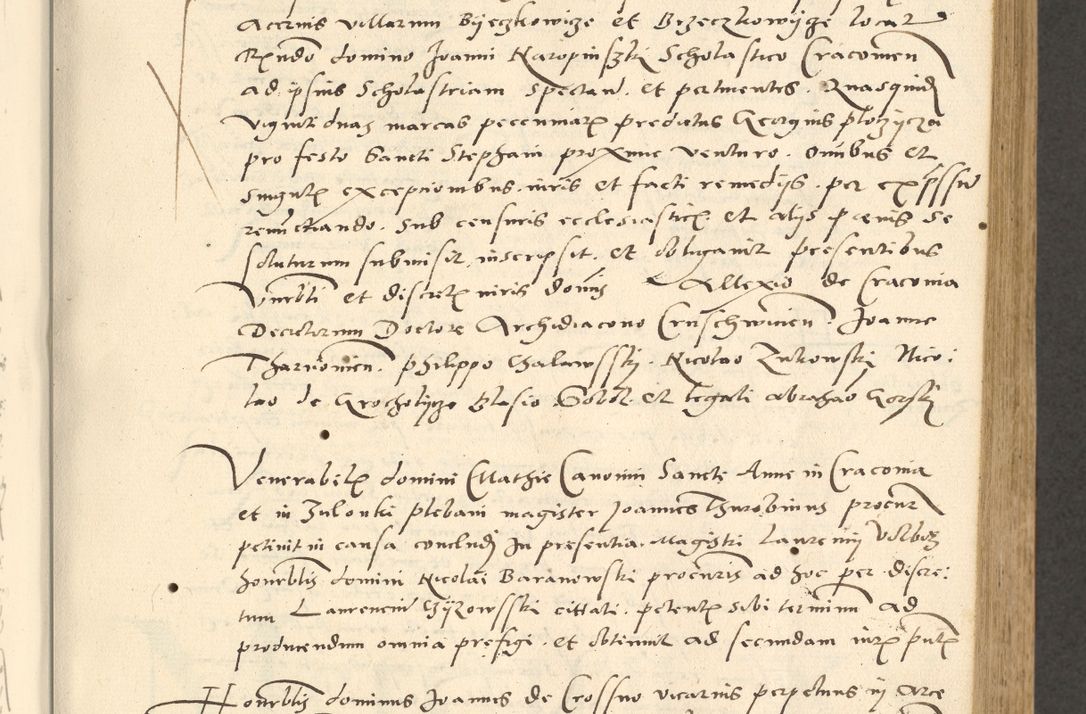 Acernis villarum Byeczkowicze et Brzeczkowycze locat
Rndo domino Joanni Karopinszki Scholastico Cracovien
ad ipsius Scholastriam spectan. et pertinentes. Quasquid
viginti duas marcas pecuniar predictus Georgius
pro festo Sancti Stephani proxime venturo. omnibus et
singulis exceptionibus iuris et facti remedijs. per expssu
renunctiando. sub censuris ecclesiasticis et alijs poenis se
soluturum submisit, inscripsit. et obligauit presentibus
Vnrbli et discretis viris domis Allexio de Cracouia
Decretorum Doctore Archidiacono Cruschwicien. Joanne
Tharnouien. Philippo Chalawsski. Nicolao Zukowski Nico:
lao de Grocholycze Blasio et legali abrahao Gorski
Venerabilis domini Mathie Canonici Sancte Anne in Cracouia
et in Zulouki plebani magister Joannes Thurobinus procur
petiuit in causa concludj in presentia Magistri Laurencij
honrblis domini Nicolai Baranowski procuris ad hoc per discre:
tum Laurencium Chyzowsski cittati. petentis sibi terminum ad
producendum omnia prefigi. et obtinuit ad secundam iuris putis
Honrblis dominus Joannes de Crossno vicarius perpetuus in Arce